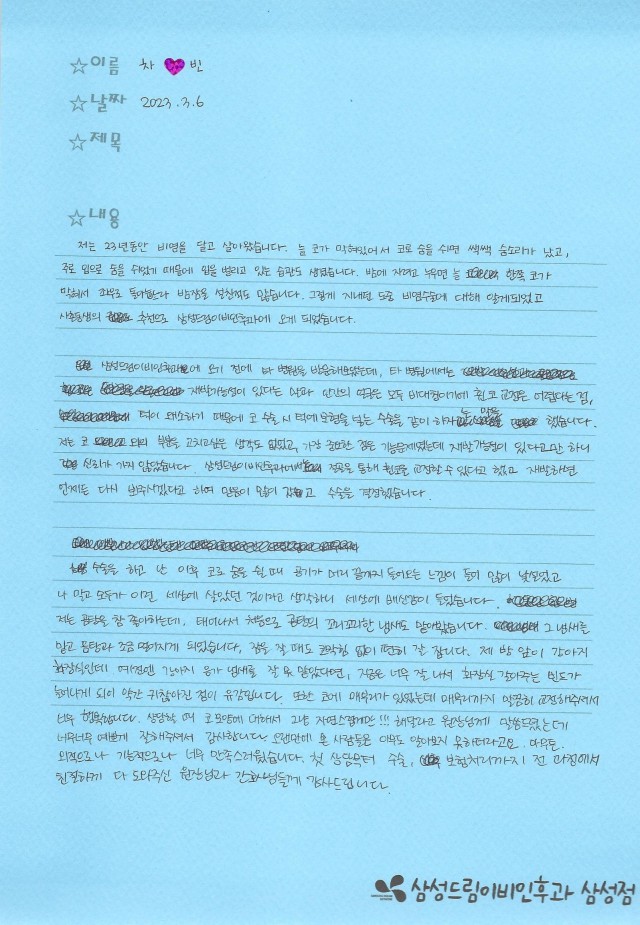 ☆이름 차 ♥ 빈
☆날짜 2023.3.6
☆제목
☆내용
저는 23년동안 비염을 달고 살아왔습니다. 늘 코가 막혀있어서 코로 숨을 쉬면 쌕쌕 숨소리가 났고,
주로 입으로 숨을 쉬었기 때문에 입을 벌리고 있는 습관도 생겼습니다. 밤에 자려고 누우면 늘 한쪽 코가
막혀서 좌우로 돌아눕느라 밤잠을 설친적도 많습니다. 그렇게 지내던 도중 비염수술에 대해 알게되었고
사촌동생의 추천으로 삼성드림이비인후과에 오게 되었습니다.
삼성드림이비인후과에 오기 전에 타 병원을 방문해보았는데, 타 병원에서는
재발가능성이 있다는 점과 만인의 얼굴은 모두 비대칭이기에 휜코 교정은 어렵다는 점,
턱이 왜소하기 때문에 코 수술 시 턱에 보형물을 넣는 수술을 같이 하자 는 말을 했습니다.
저는 코 외의 부분을 고치려는 생각도 없었고, 가장 중요한 점은 기능문제였는데 재발가능성이 있다고만 하니
신뢰가 가지 않았습니다. 삼성드림이비인후과에서는 절골을 통해 휜코를 교정할 수 있다고 했고 재발하면
언제든 다시 봐주시겠다고 하여 믿음이 많이 갔고 수술을 결정했습니다.
수술을 하고 난 이후 코로 숨을 쉴 때 공기가 머리 끝까지 들어오는 느낌이 들어 많이 낯설었고
나 말고 모두가 이런 세상에 살았던 것이라고 생각하니 세상에 배신감이 들었습니다.
저는 곰탕을 참 좋아하는데, 태어나서 처음으로 곰탕의 꼬리꼬리한 냄새도 맡아봤습니다. 그 냄새를
맡고 곰탕과 조금 멀어지게 되었습니다, 잠을 잘 때도 코막힘 없이 편히 잘 잡니다. 제 방 앞이 강아지
화장실인데 예전엔 강아지 응가 냄새를 잘 못 맡았다면, 지금은 너무 잘 나서 화장실 갈아주는 빈도가
늘어나게 되어 약간 귀찮아진 점이 유감입니다. 또한 코에 매부리가 있었는데 매부리까지 말끔히 교정해주셔서
너무 행복합니다. 상담할 때 코모양에 대해서 그냥 자연스럽게만!!! 해달라고 원장님께 말씀드렸는데
너무너무 예쁘게 잘해주셔서 감사합니다. 오랜만에 본 사람들은 아무도 알아보지 못하더라고요. 아무튼,
외적으로나 기능적으로나 너무 만족스러웠습니다. 첫 상담부터 수술, 보험처리까지 전 과정에서
친절하게 다 도와주신 원장님과 간호사님들께 감사드립니다.
삼성드림이비인후과 삼성점